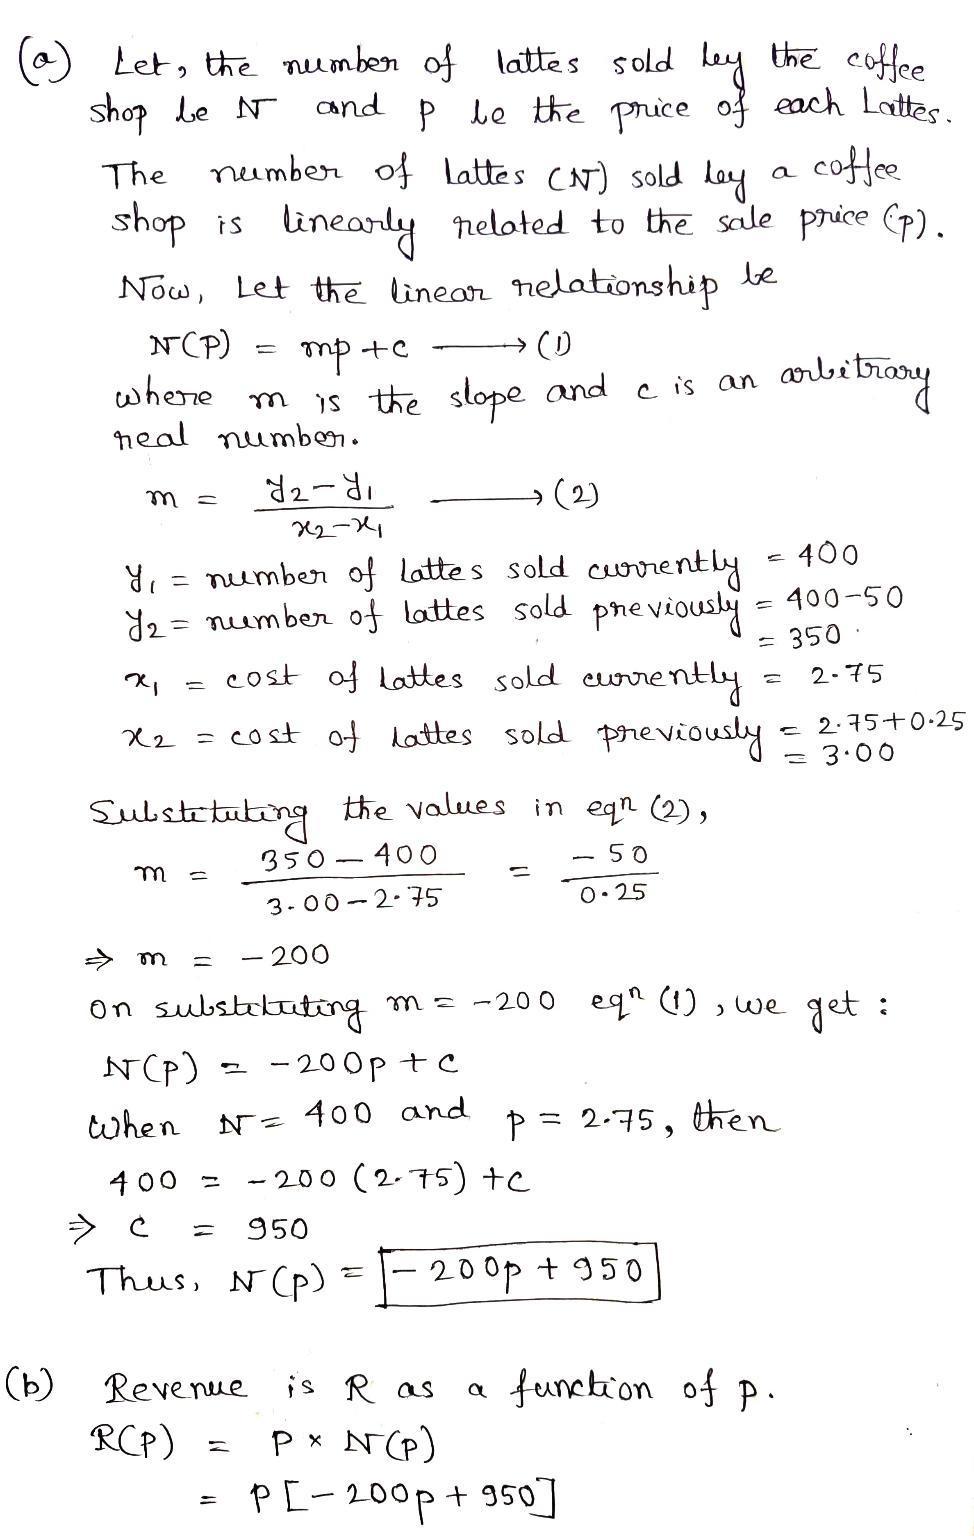 (a) Let, the number of lattes sold by the coffee
shop be N and p be the price of each Lattes.
The number of lattes (N) sold by a coffee
shop is linearly related to the sale price (p).
Now, Let the linear relationship be
N(P) = mp + c ⟶ (1)
where m is the slope and c is an arbitrary
real number.
m = (y₂ - y₁)/(x₂ - x₁) ⟶ (2)
y₁ = number of lattes sold currently = 400
y₂ = number of lattes sold previously = 400-50
= 350
x₁ = cost of lattes sold currently = 2.75
x₂ = cost of lattes sold previously = 2.75+0.25
= 3.00
Substituting the values in eqn (2),
m = (350 - 400)/(3.00 - 2.75) = (-50)/(0.25)
⇒ m = -200
on substituting m = -200 eqn (1), we get :
N(p) = -200p + c
When N = 400 and p = 2.75, then
400 = -200 (2.75) + c
⇒ c = 950
Thus, N(p) = -200p + 950
(b) Revenue is R as a function of p.
R(P) = P × N(p)
= P [-200p + 950]